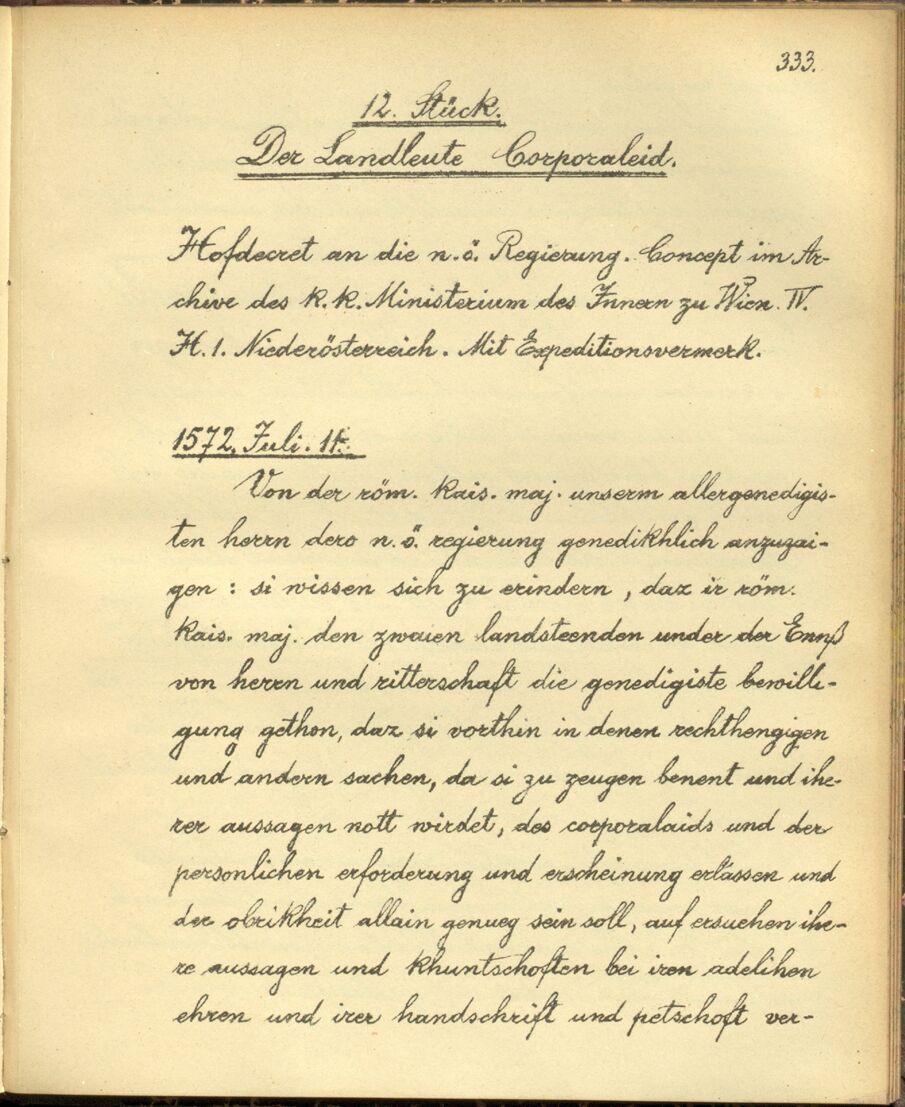 333.
12. Stück.
Der Landleute Corporaleid.
Hofdecret an die n.ö. Regierung. Concept im Ar-
chive des k.k. Ministerium des Innern zu Wien. IV.
H.1. Niederösterreich. Mit Expeditionsvermerk.
1572. Juli.
Von der röm. kais. maj. unserm allergenedigis-
ten herrn dero n.ö. regierung genedikhlich anzuzai-
gen: si wissen sich zu erindern, daz ir röm.
kais. maj. den zwaien landsteenden under der Ennß
von herrn und ritterschaft die genedigiste bewilli-
gung gethon, daz si vorthin in denen rechthengigen
und andern sachen, da si zu zeugen benent und ihe-
rer aussagen nott wirdet, des corporalaids und der
personlichen erforderung und erscheinung erlassen und
der obrikheit allain genueg sein soll, auf ersuchen ihe-
re aussagen und khuntschoften bei iren adelihen
ehren und irer handschrift und petschoft ver-